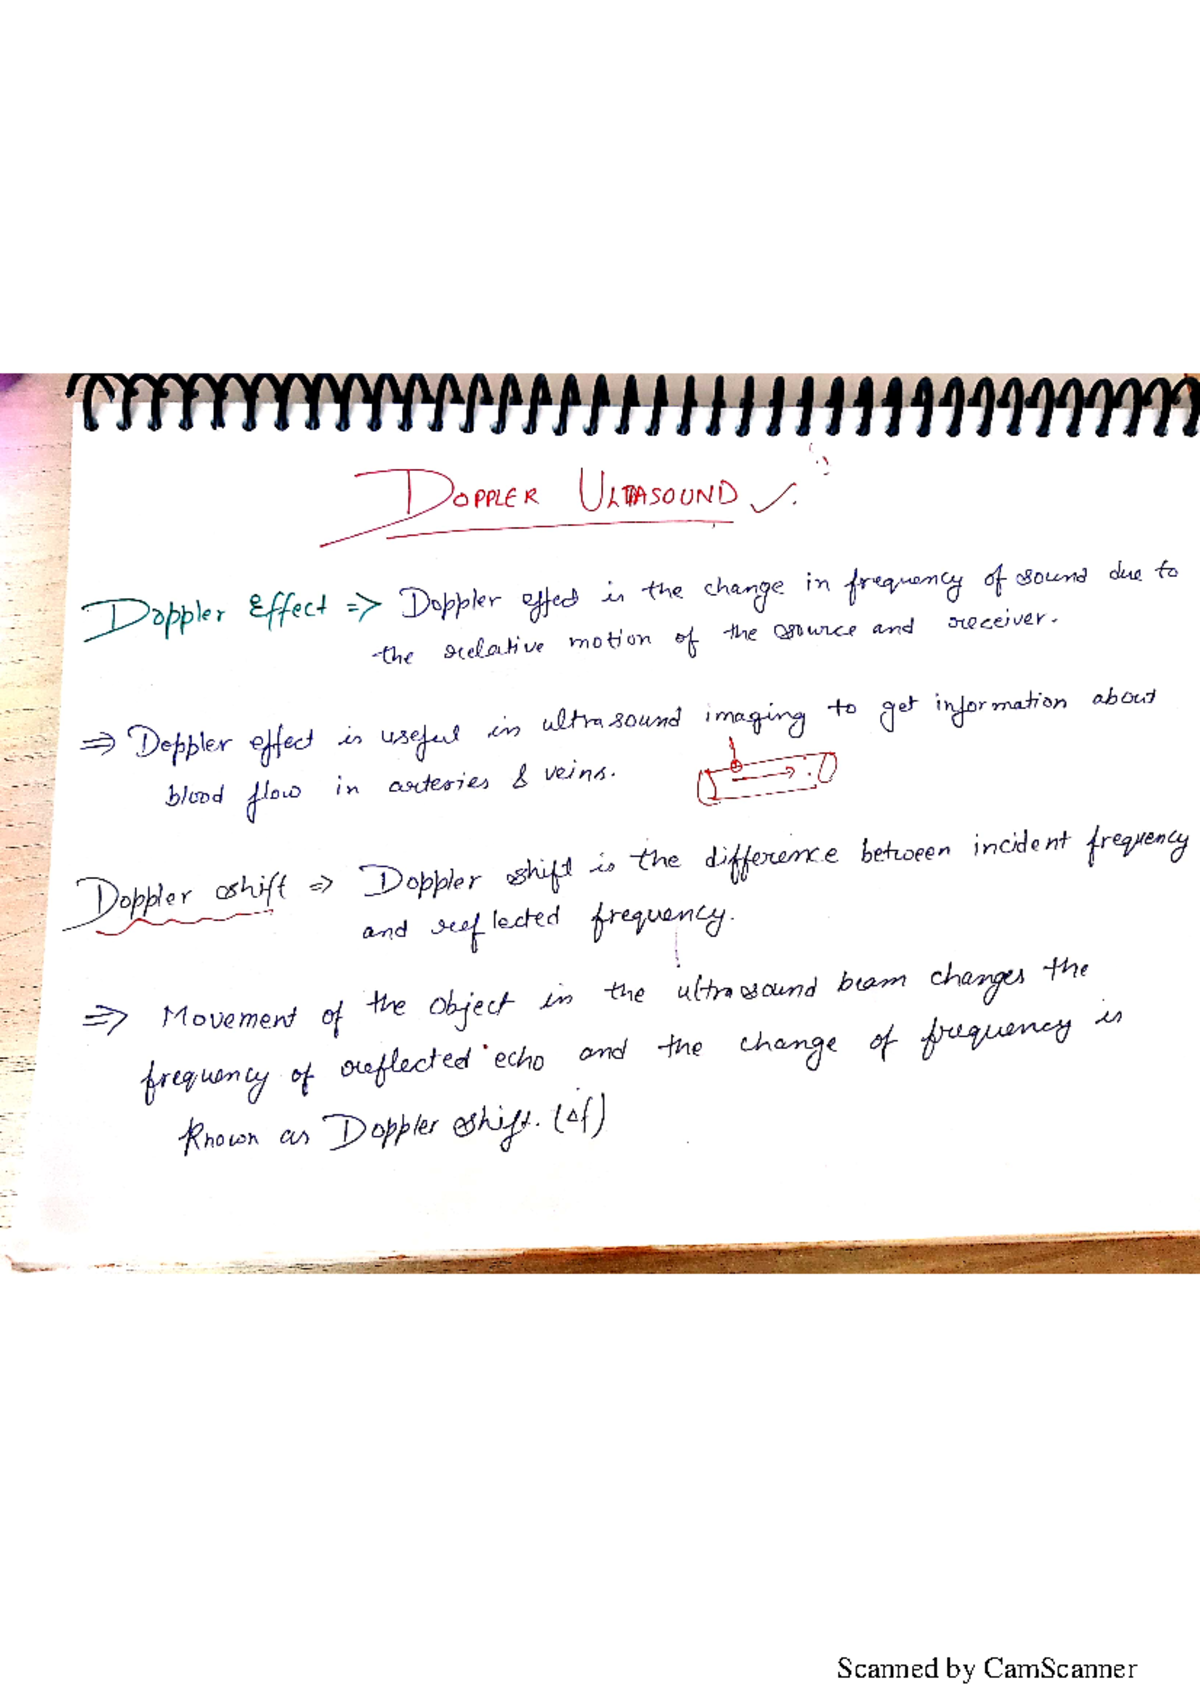 DOPPLER ULTRASOUND
Doppler Effect => Doppler effect is the change in frequency of sound due to
the relative motion of the source and receiver.
=> Doppler effect is useful in ultrasound imaging to get information about
blood flow in arteries & veins.
Doppler shift => Doppler shift is the difference between incident frequency
and reflected frequency.
=> Movement of the object in the ultrasound beam changes the
frequency of reflected echo and the change of frequency is
Known as Doppler shift. (Δf)
Scanned by CamScanner